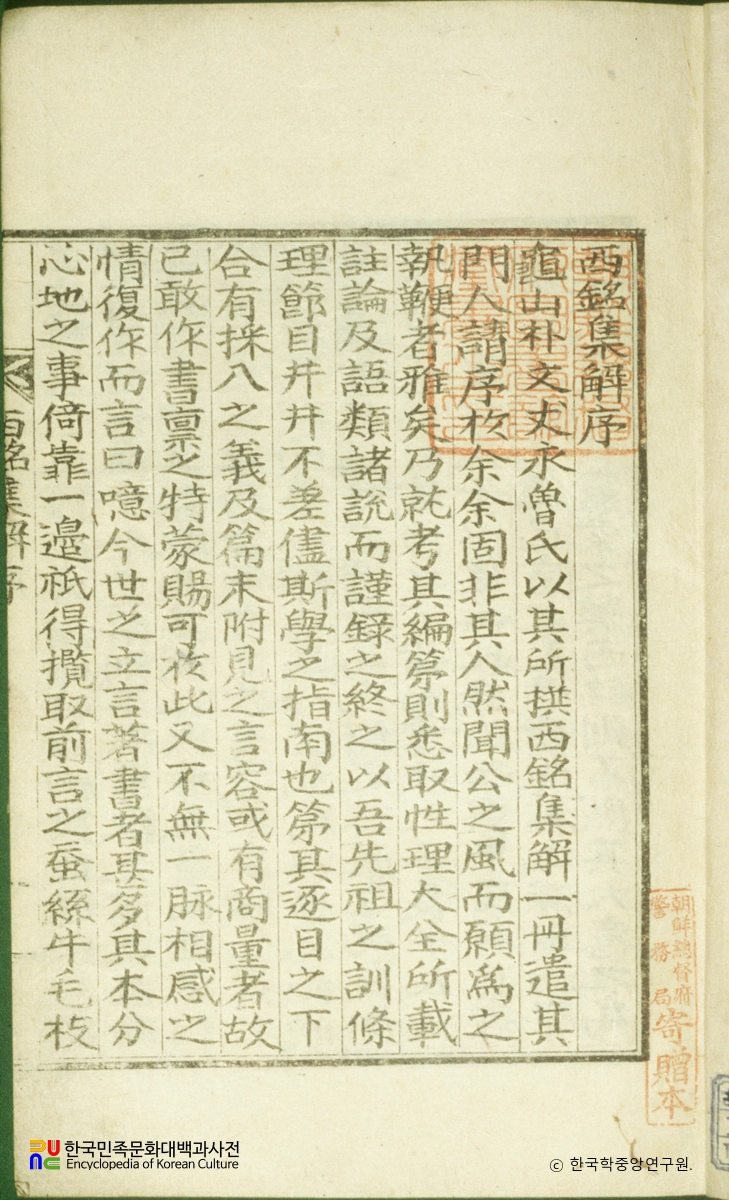 西銘集解序
龜山朴文丈永魯氏以其所撰西銘集解一冊遣其
門人請序於余余固非其人然聞公之風而願爲之
執鞭者雅矣乃就考其編第則悉取性理大全所載
註論及語類諸說而謹錄之終之以吾先祖之訓條
理節目井井不差儘斯學之指南也第其逐目之下
合有採入之義及篇末附見之言容或有商量者故
已敢作書禀之特蒙賜可於此又不無一脉相感之
情復作而言曰噫今世之立言著書者甚多其本分
心地之事倚靠一邊祇得攬取前言之蚕絲牛毛枝
西銘集解序
朝鮮總督府
警務局
寄贈本
한국민족문화대백과사전
Encyclopedia of Korean Culture
ⓒ 한국학중앙연구원.